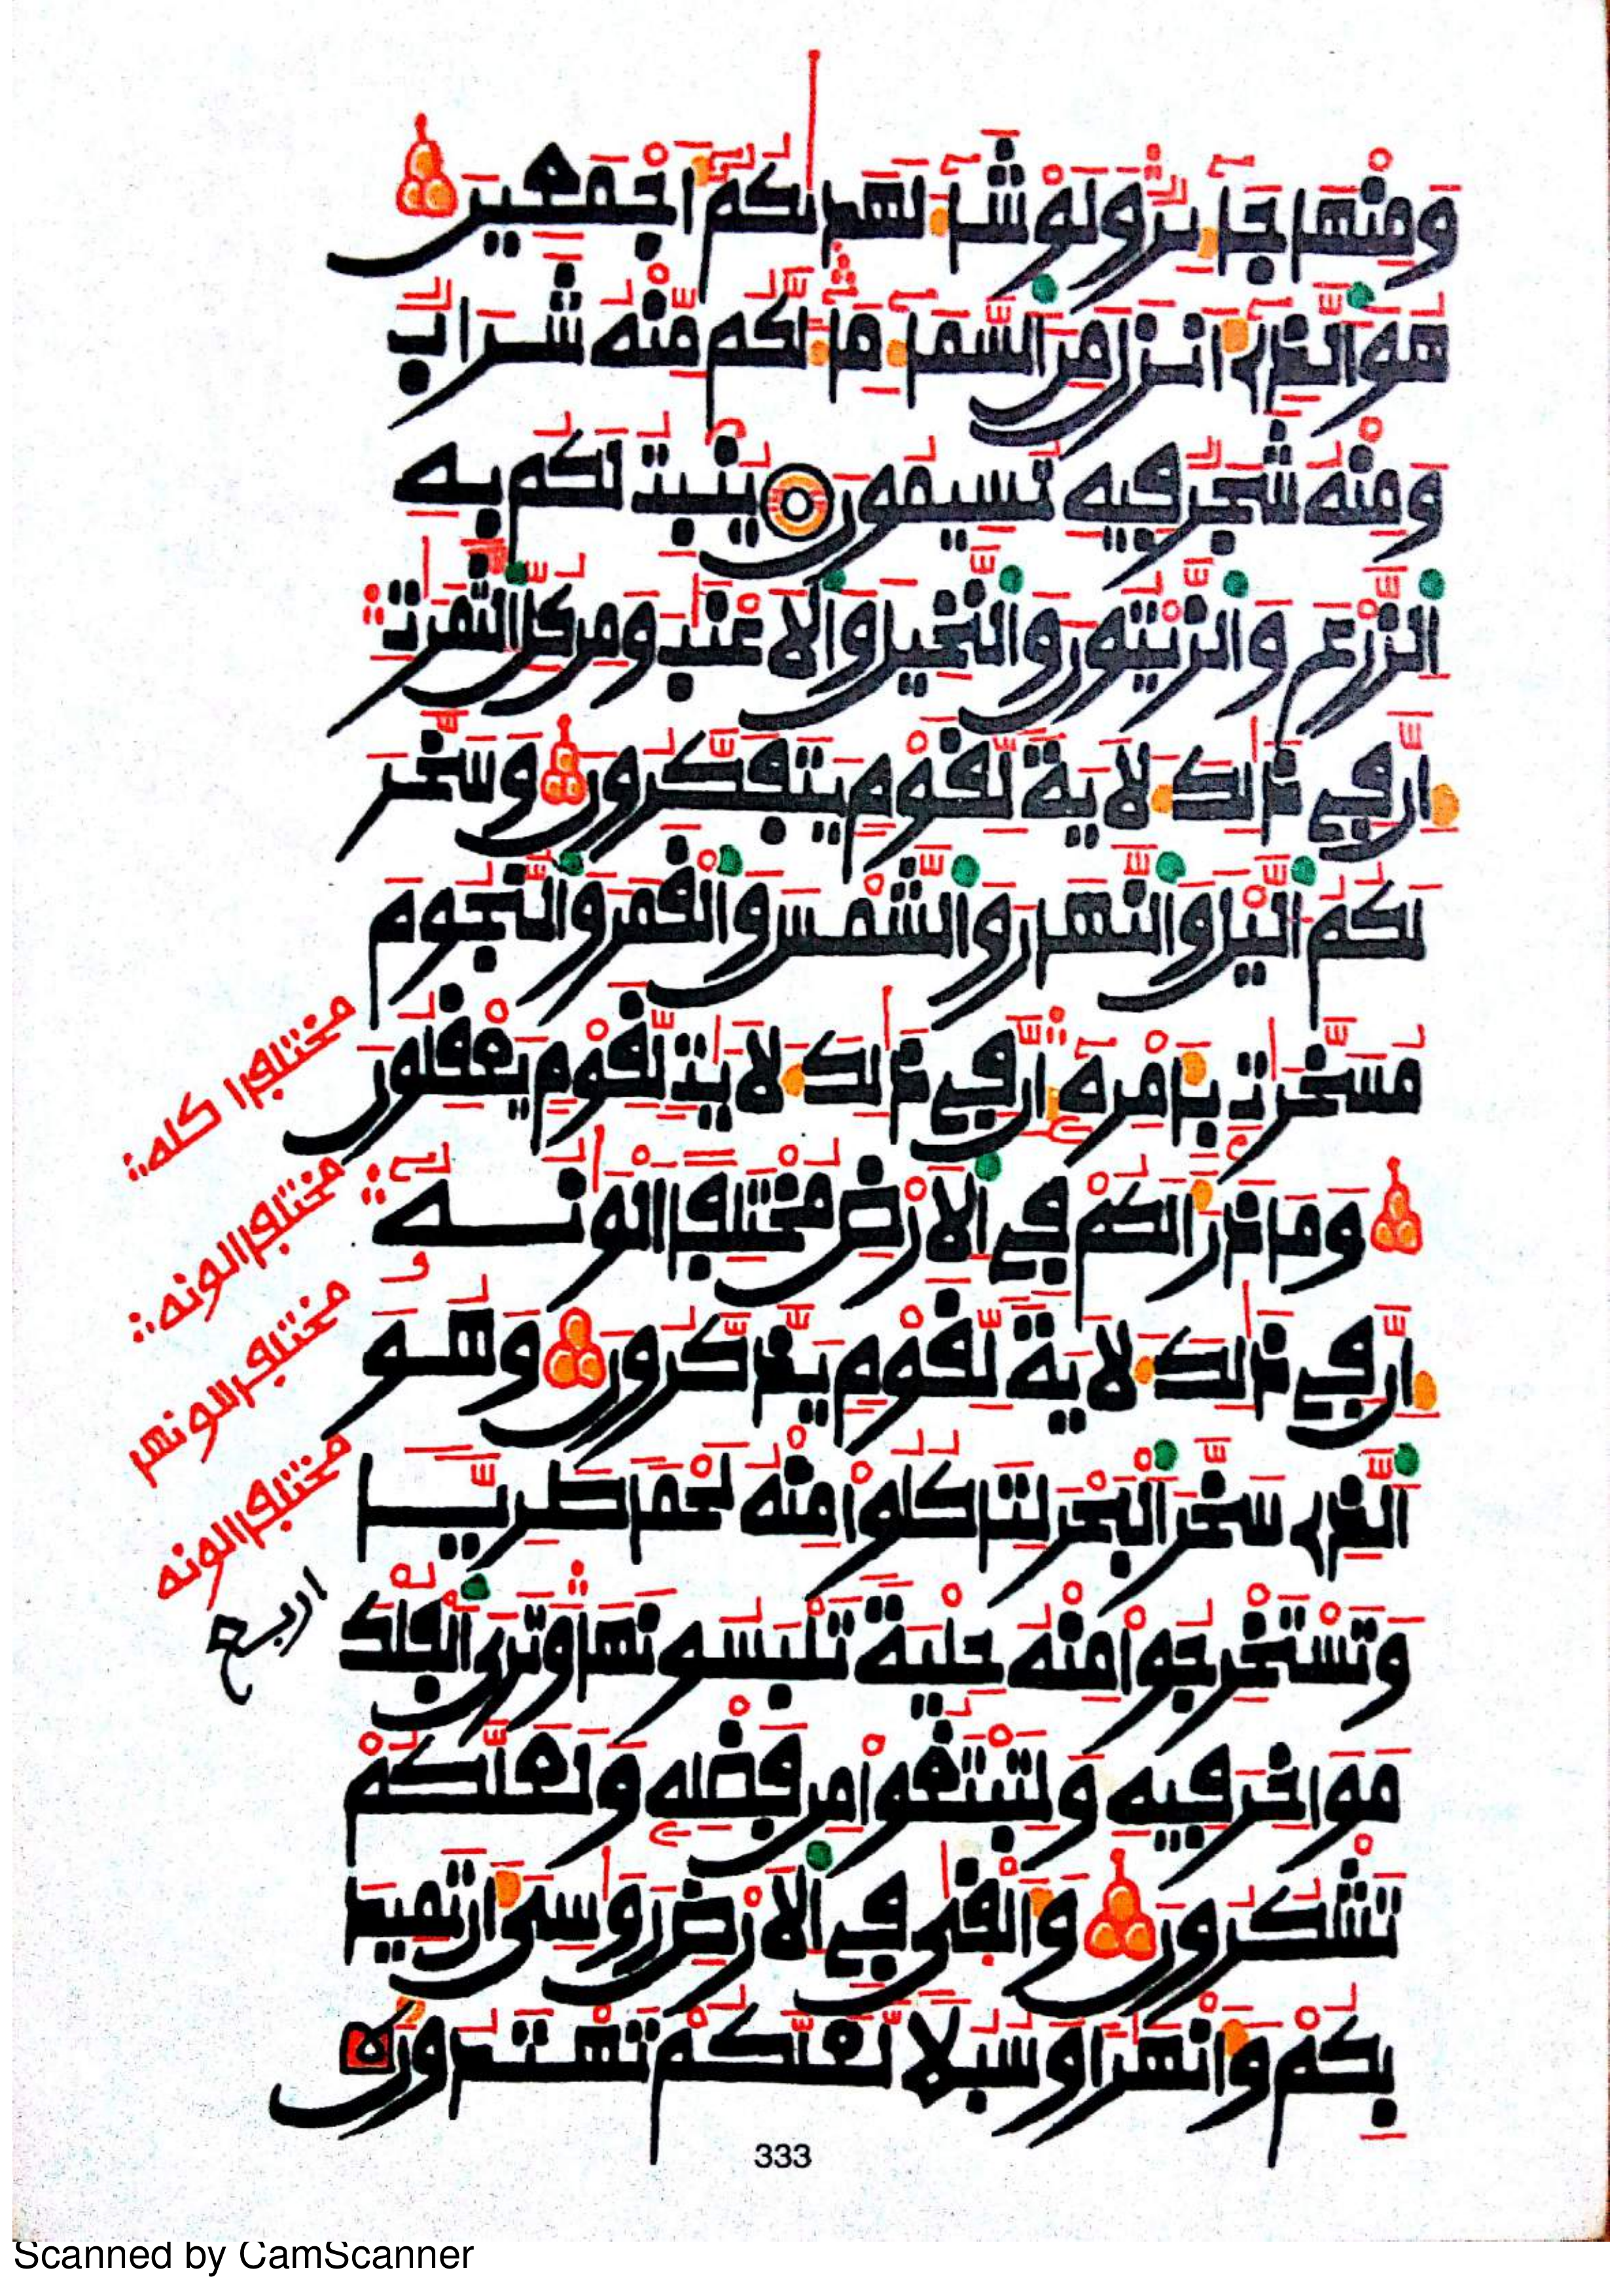 وَمِنْهَا جَآئِرٌ وَلَوْ شَآءَ لَهَدٰىكُمْ أَجْمَعِينَ
هُوَ الَّذِي أَنزَلَ مِنَ السَّمَآءِ مَآءً لَّكُم مِّنْهُ شَرَابٌ
وَمِنْهُ شَجَرٌ فِيهِ تُسِيمُونَ يُنۢبِتُ لَكُم بِهِ
الزَّرْعَ وَالزَّيْتُونَ وَالنَّخِيلَ وَالْأَعْنٰبَ وَمِن كُلِّ الثَّمَرٰتِ
إِنَّ فِي ذٰلِكَ لَأٓيَةً لِّقَوْمٍ يَتَفَكَّرُونَ وَسَخَّرَ
لَكُمُ الَّيْلَ وَالنَّهَارَ وَالشَّمْسَ وَالْقَمَرَ وَالنُّجُومَ
مُسَخَّرٰتٍ بِأَمْرِهِ إِنَّ فِي ذٰلِكَ لَأٓيٰتٍ لِّقَوْمٍ يَعْقِلُونَ
وَمَا ذَرَأَ لَكُمْ فِي الْأَرْضِ مُخْتَلِفًا أَلْوٰنُهُ
إِنَّ فِي ذٰلِكَ لَأٓيَةً لِّقَوْمٍ يَذَّكَّرُونَ وَهُوَ
الَّذِي سَخَّرَ الْبَحْرَ لِتَأْكُلُوا مِنْهُ لَحْمًا طَرِيًّا
وَتَسْتَخْرِجُوا مِنْهُ حِلْيَةً تَلْبَسُونَهَا وَتَرَى الْفُلْكَ
مَوَاخِرَ فِيهِ وَلِتَبْتَغُوا مِن فَضْلِهِ وَلَعَلَّكُمْ
تَشْكُرُونَ وَأَلْقٰى فِي الْأَرْضِ رَوٰسِيَ أَن تَمِيدَ
بِكُمْ وَأَنْهٰرًا وَسُبُلًا لَّعَلَّكُمْ تَهْتَدُونَ
مختلفا اكله
مختلفا الونه
مختلفا الونه
اربع
333
Scanned by CamScanner